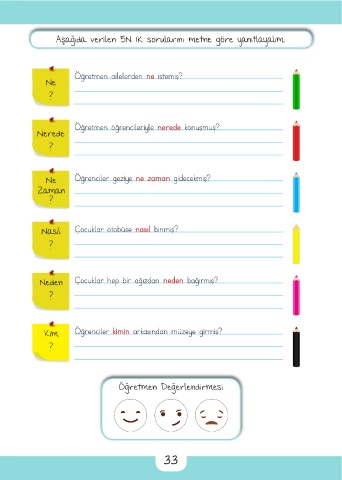 Aşağıda verilen 5N 1K sorularını metne göre yanıtlayalım.
Ne
?
Öğretmen ailelerden ne istemiş?
Nerede
?
Öğretmen öğrencileriyle nerede konuşmuş?
Ne
Zaman
?
Öğrenciler geziye ne zaman gidecekmiş?
Nasıl
?
Çocuklar otobüse nasıl binmiş?
Neden
?
Çocuklar hep bir ağızdan neden bağırmış?
Kim
?
Öğrenciler kimin arkasından müzeye girmiş?
Öğretmen Değerlendirmesi
33